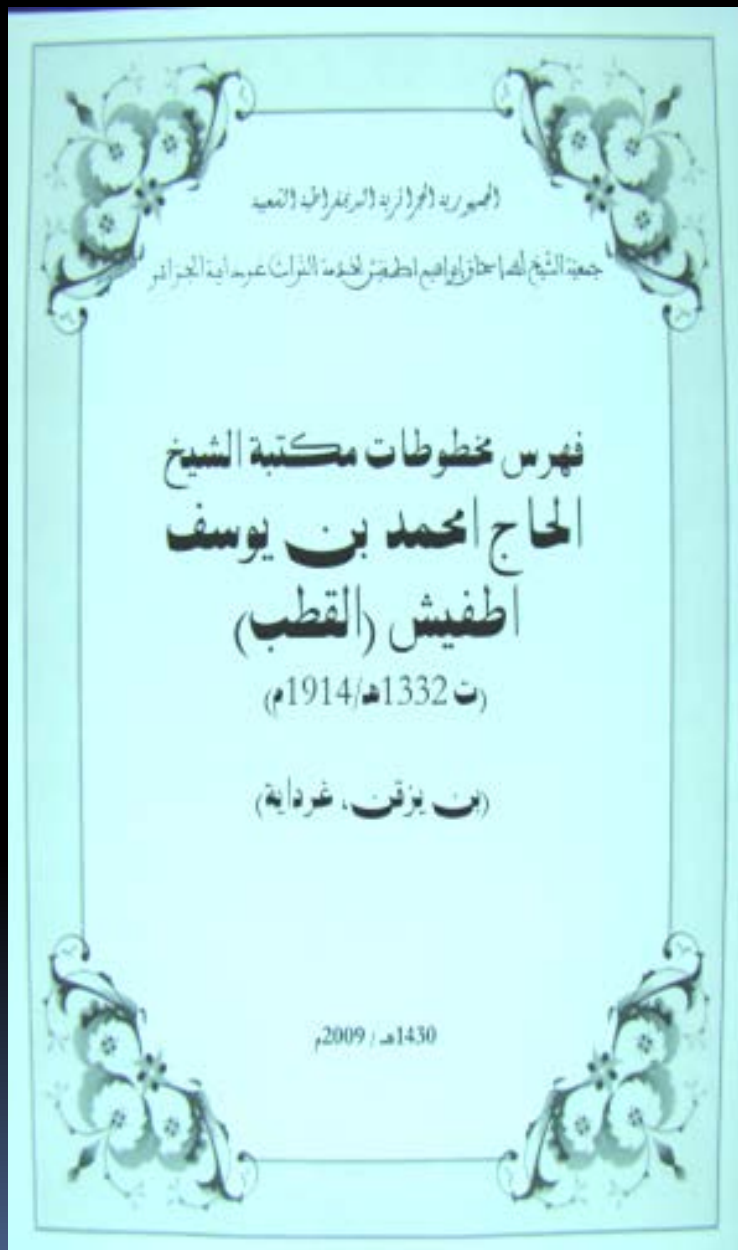 الجمهورية الجزائرية الديمقراطية الشعبية
جمعية الشيخ أبي إسحاق إبراهيم اطفيش لخدمة التراث غرداية الجزائر
فهرس مخطوطات مكتبة الشيخ
الحاج امحمد بن يوسف
اطفيش (القطب)
(ت 1332هـ/1914م)
(بن يزقن، غرداية)
1430هـ / 2009م